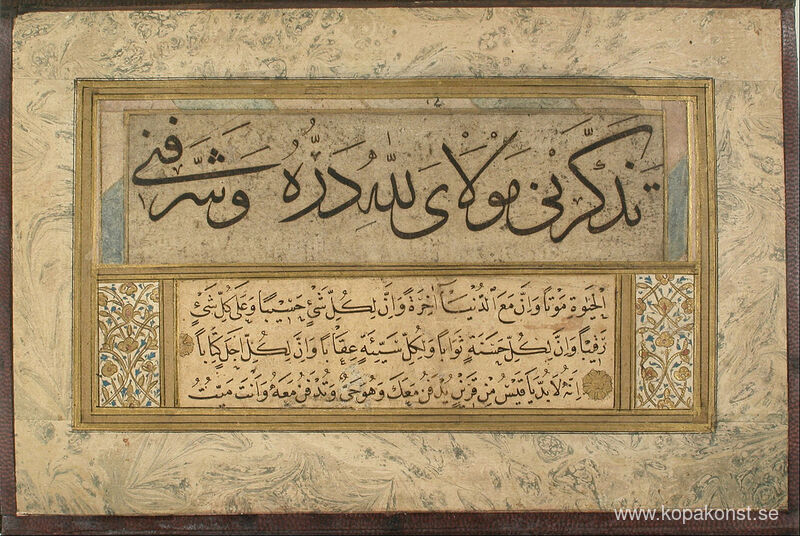 تَذَكَّرَنِي مَوْلَايَ لِلّٰهِ دَرُّهُ وَشَرَّفَنِي
الْحَيٰوةِ مَوْتًا وَاِنَّ مَعَ الدُّنْيَا اٰخِرَةً وَاِنَّ لِكُلِّ شَيْءٍ حَسِيبًا وَعَلٰى كُلِّ شَيْءٍ
رَقِيبًا وَاِنَّ لِكُلِّ حَسَنَةٍ ثَوَابًا وَلِكُلِّ سَيِّئَةٍ عِقَابًا وَاِنَّ لِكُلِّ اَجَلٍ كِتَابًا
اِنَّهُ لَا بُدَّ يَا قَيْسُ مِنْ قَرِينٍ يُدْفَنُ مَعَكَ وَهُوَ حَيٌّ وَتُدْفَنُ مَعَهُ وَاَنْتَ مَيِّتٌ
www.kopakonst.se